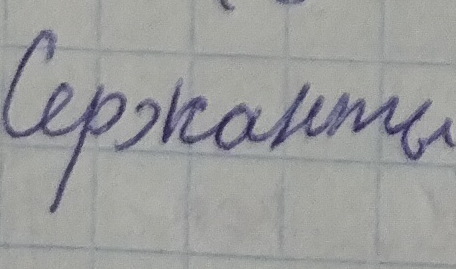 Сержанты